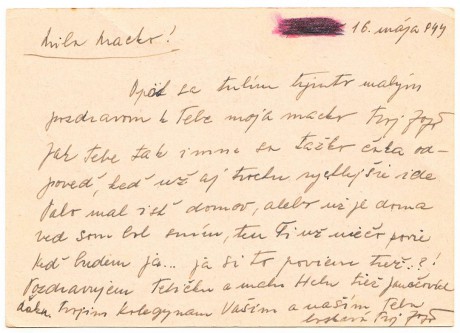 Milá Macko! 16. mája 944
Opäť sa tulím týmto malým
pozdravom k Tebe moja macko Tvoj Jožo
Jak Tebe tak i mne sa ťažko čaká od-
poveď, keď už aj trochu rychlejšie ide
Palo mal ísť domov, alebo už je doma
veď som bol s ním, ten Ti už niečo povie
keď budem ja... ja si to poviem tiež..?!
Pozdravujem Tetičku a malú Helu tiež
Tvojim kolegynam Vašim a našim
Tvoj Jožo